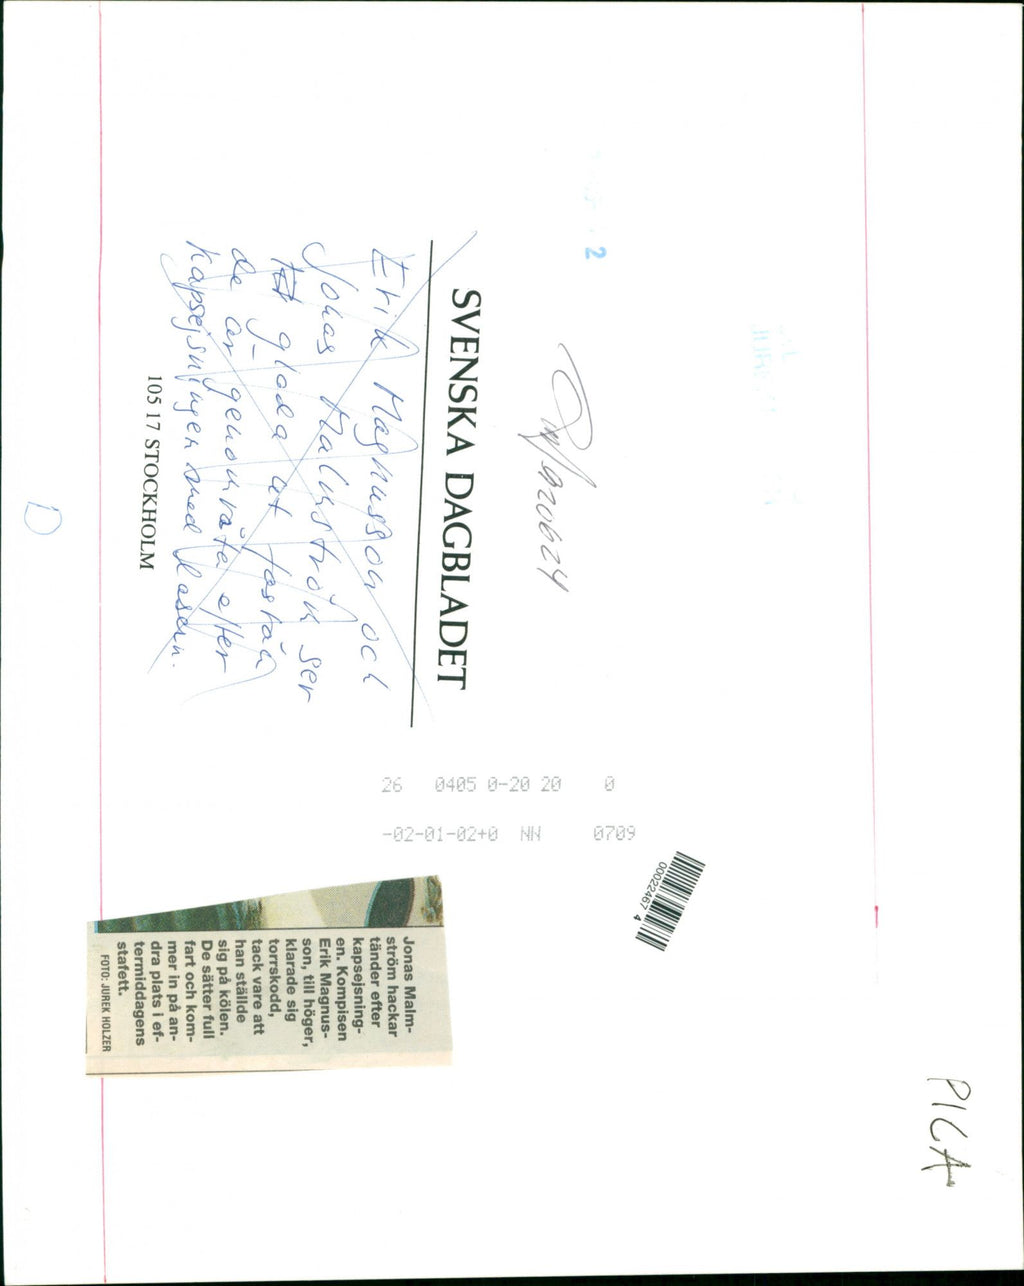 2
SVENSKA DAGBLADET
Erik Magnusson och
Johas Malmström ser
glada ut fastän
de är genomvåta efter
kapsejsningen med lasern.
105 17 STOCKHOLM
/920624
D
26 0405 0-20 20 0
-02-01-02+0 NN 0709
00022467 4
PICA
Jonas Malm-
ström hackar
tänder efter
kapsejsning-
en. Kompisen
Erik Magnus-
son, till höger,
klarade sig
torrskodd,
tack vare att
han ställde
sig på kölen.
De sätter full
fart och kom-
mer in på an-
dra plats i ef-
termiddagens
stafett.
FOTO: JUREK HOLZER